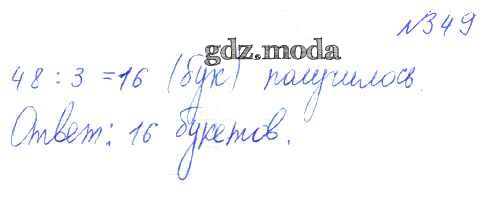 №349
gdz.moda
48 : 3 = 16 (бук) получилось.
Ответ: 16 букетов.